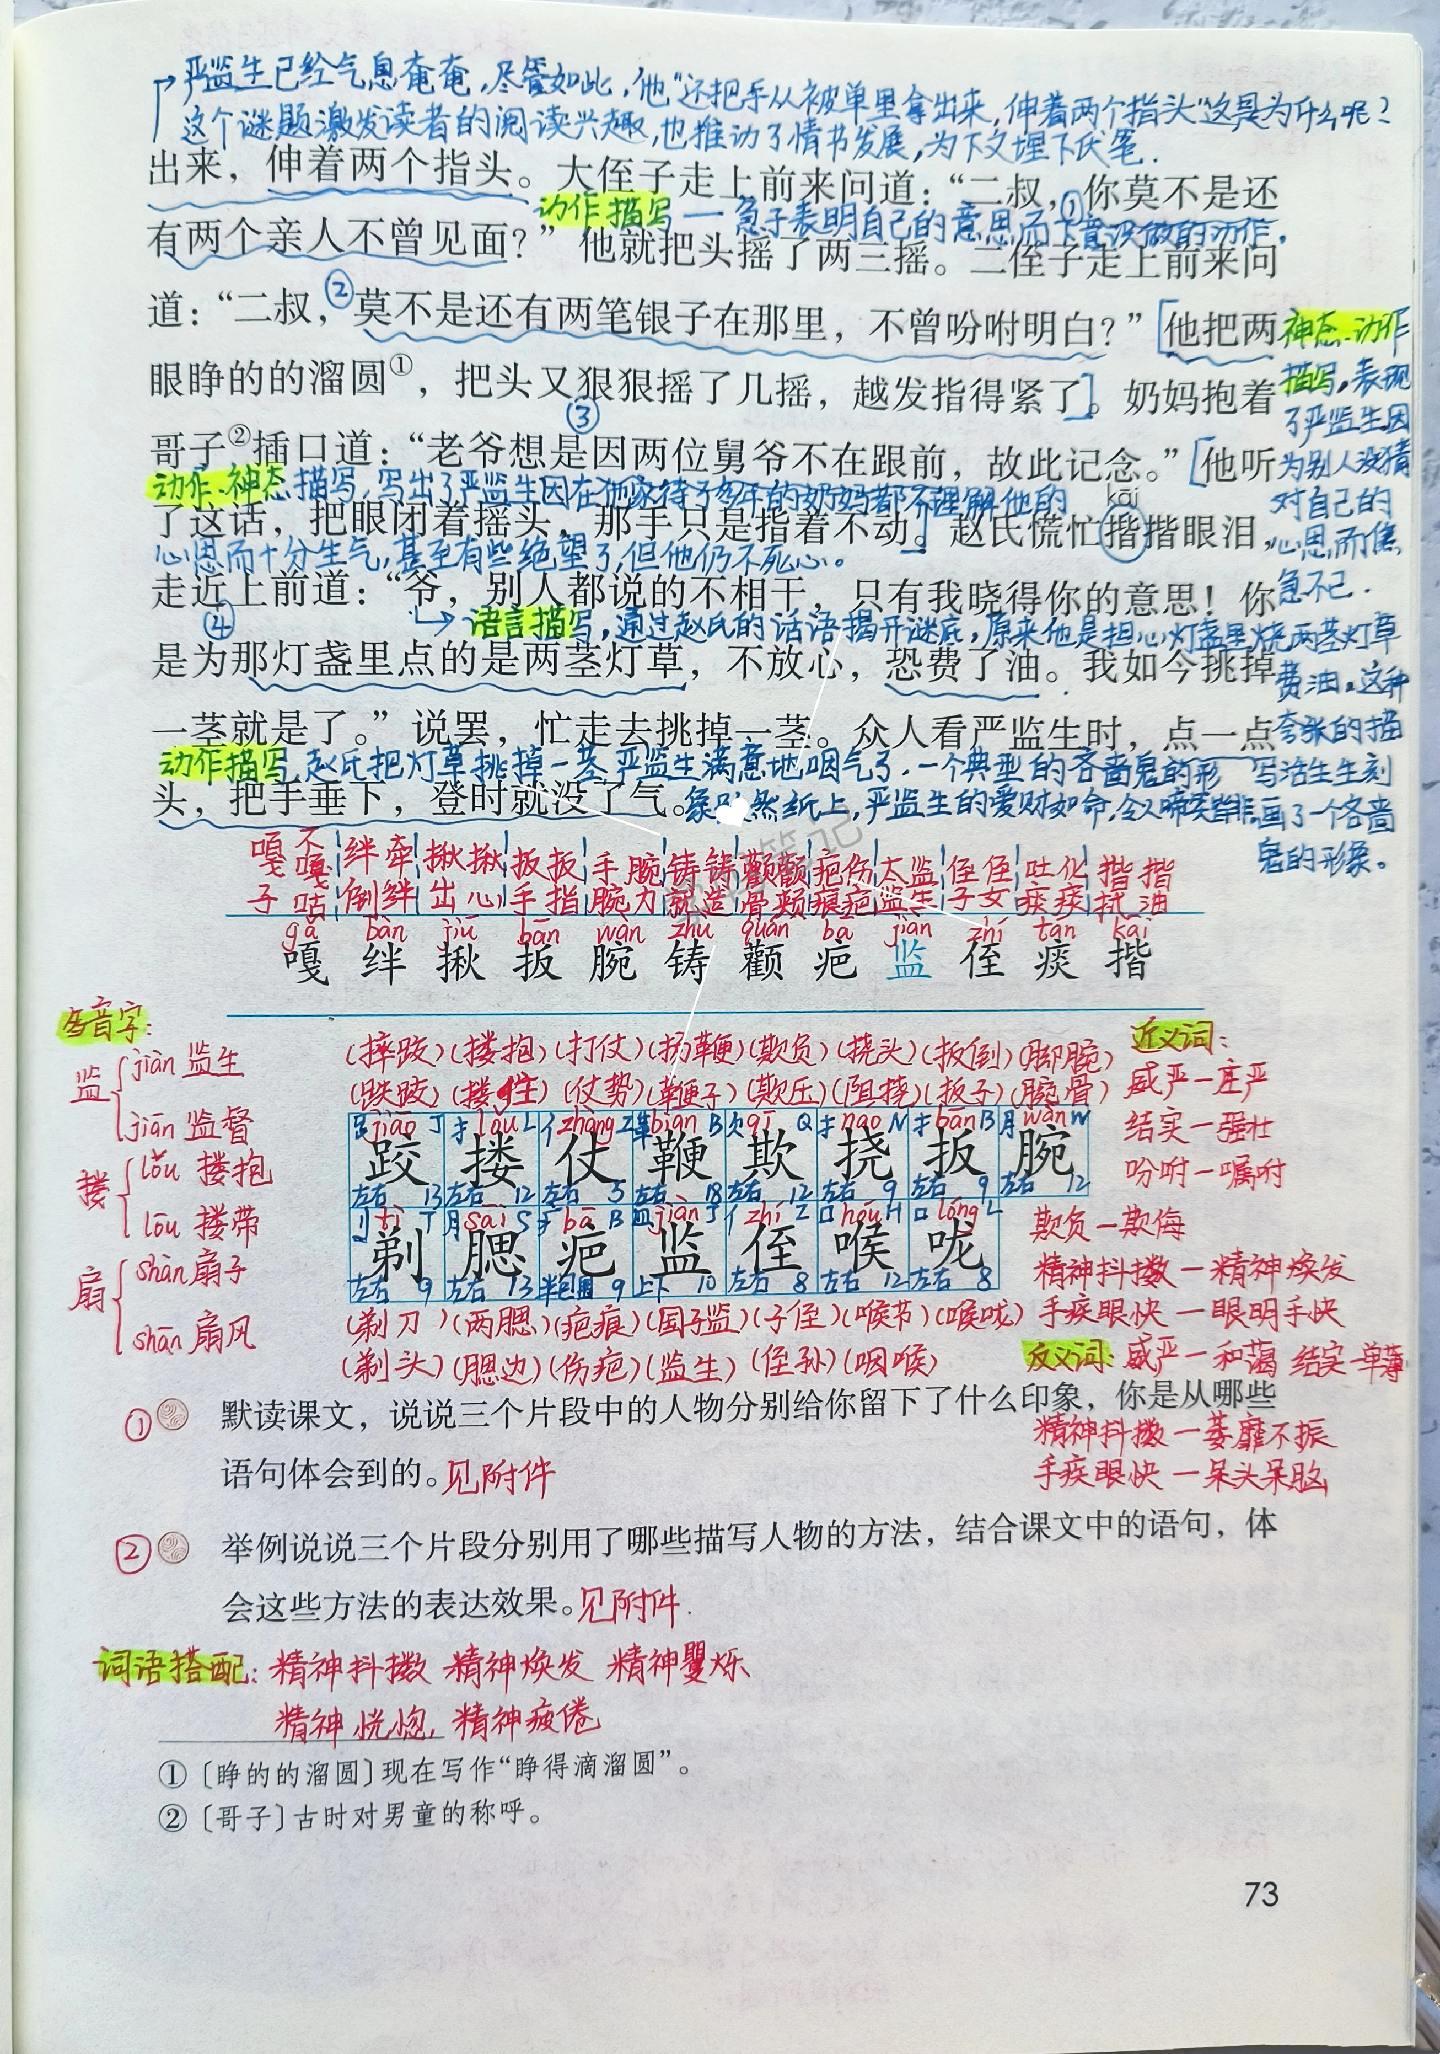 严监生已经气息奄奄,尽管如此,他"还把手从被单里拿出来,伸着两个指头"这是为什么呢?
这个谜题激发读者的阅读兴趣,也推动了情节发展,为下文埋下伏笔.
出来，伸着两个指头。大侄子走上前来问道：“二叔，①你莫不是还
动作描写—急于表明自己的意思而下意识做的动作.
有两个亲人不曾见面？”他就把头摇了两三摇。二侄子走上前来问
道：“二叔，②莫不是还有两笔银子在那里，不曾吩咐明白？”[他把两
眼睁的的溜圆①，把头又狠狠摇了几摇，越发指得紧了]。奶妈抱着
神态.动作
描写,表现
了严监生因
为别人没猜
对自己的
心思而焦
急不已.
③
哥子②插口道：“老爷想是因两位舅爷不在跟前，故此记念。”[他听
动作、神态描写,写出了严监生因在他家待了多年的奶妈都不理解他的
kāi
了这话，把眼闭着摇头，那手只是指着不动]。赵氏慌忙揩揩眼泪，
心思而十分生气,甚至有些绝望了,但他仍不死心。
走近上前道：“爷，别人都说的不相干，只有我晓得你的意思！你
④
语言描写,通过赵氏的话语揭开谜底,原来他是担心灯盏里烧两茎灯草
费油。这种
夸张的描
写活生生刻
画了一个吝啬
鬼的形象。
是为那灯盏里点的是两茎灯草，不放心，恐费了油。我如今挑掉
一茎就是了。”说罢，忙走去挑掉一茎。众人看严监生时，点一点
动作描写,赵氏把灯草挑掉一茎,严监生满意地咽气了.一个典型的吝啬鬼的形
头，把手垂下，登时就没了气。象跃然纸上,严监生的爱财如命,令人啼笑皆非.
嘎 不嘎 绊牵 揪揪 扳扳 手腕 铸铸 颧颧 疤伤 太监 侄侄 吐化 揩揩
子 咕 倒绊 出心 手指 腕力 就造 骨颊 痕疤 监生 子女 痰痰 拭油
gǎ bàn jiū bān wàn zhù quán bā jiàn zhí tán kāi
嘎 绊 揪 扳 腕 铸 颧 疤 监 侄 痰 揩
多音字:
监 jiàn 监生
jiān 监督
搂 lǒu 搂抱
lōu 搂带
扇 shàn 扇子
shān 扇风
(摔跤)(搂抱)(打仗)(扬鞭)(欺负)(挠头)(扳倒)(脚腕)
(跌跤)(搂住)(仗势)(鞭子)(欺压)(阻挠)(扳子)(腕骨)
𧾷 jiāo J 扌 lǒu L 亻 zhàng Z 革 biān B 欠 qī Q 扌 náo N 扌 bān B 月 wàn W
跤 搂 仗 鞭 欺 挠 扳 腕
左右 13 左右 12 左右 5 左右 18 左右 12 左右 9 左右 9 左右 12
刂 tì T 月 sāi S 疒 bā B 皿 jiàn J 亻 zhí Z 口 hóu H 口 lóng L
剃 腮 疤 监 侄 喉 咙
左右 9 左右 13 半包围 9 上下 10 左右 8 左右 12 左右 8
(剃刀)(两腮)(疤痕)(国子监)(子侄)(喉节)(喉咙)
(剃头)(腮边)(伤疤)(监生)(侄孙)(咽喉)
近义词:
威严—庄严
结实—强壮
吩咐—嘱咐
欺负—欺侮
精神抖擞—精神焕发
手疾眼快—眼明手快
反义词: 威严—和蔼 结实—单薄
精神抖擞—萎靡不振
手疾眼快—呆头呆脑
① 默读课文，说说三个片段中的人物分别给你留下了什么印象，你是从哪些
语句体会到的。见附件
② 举例说说三个片段分别用了哪些描写人物的方法，结合课文中的语句，体
会这些方法的表达效果。见附件.
词语搭配: 精神抖擞 精神焕发 精神矍烁
精神恍惚, 精神疲倦
①〔睁的的溜圆〕现在写作“睁得滴溜圆”。
②〔哥子〕古时对男童的称呼。
73